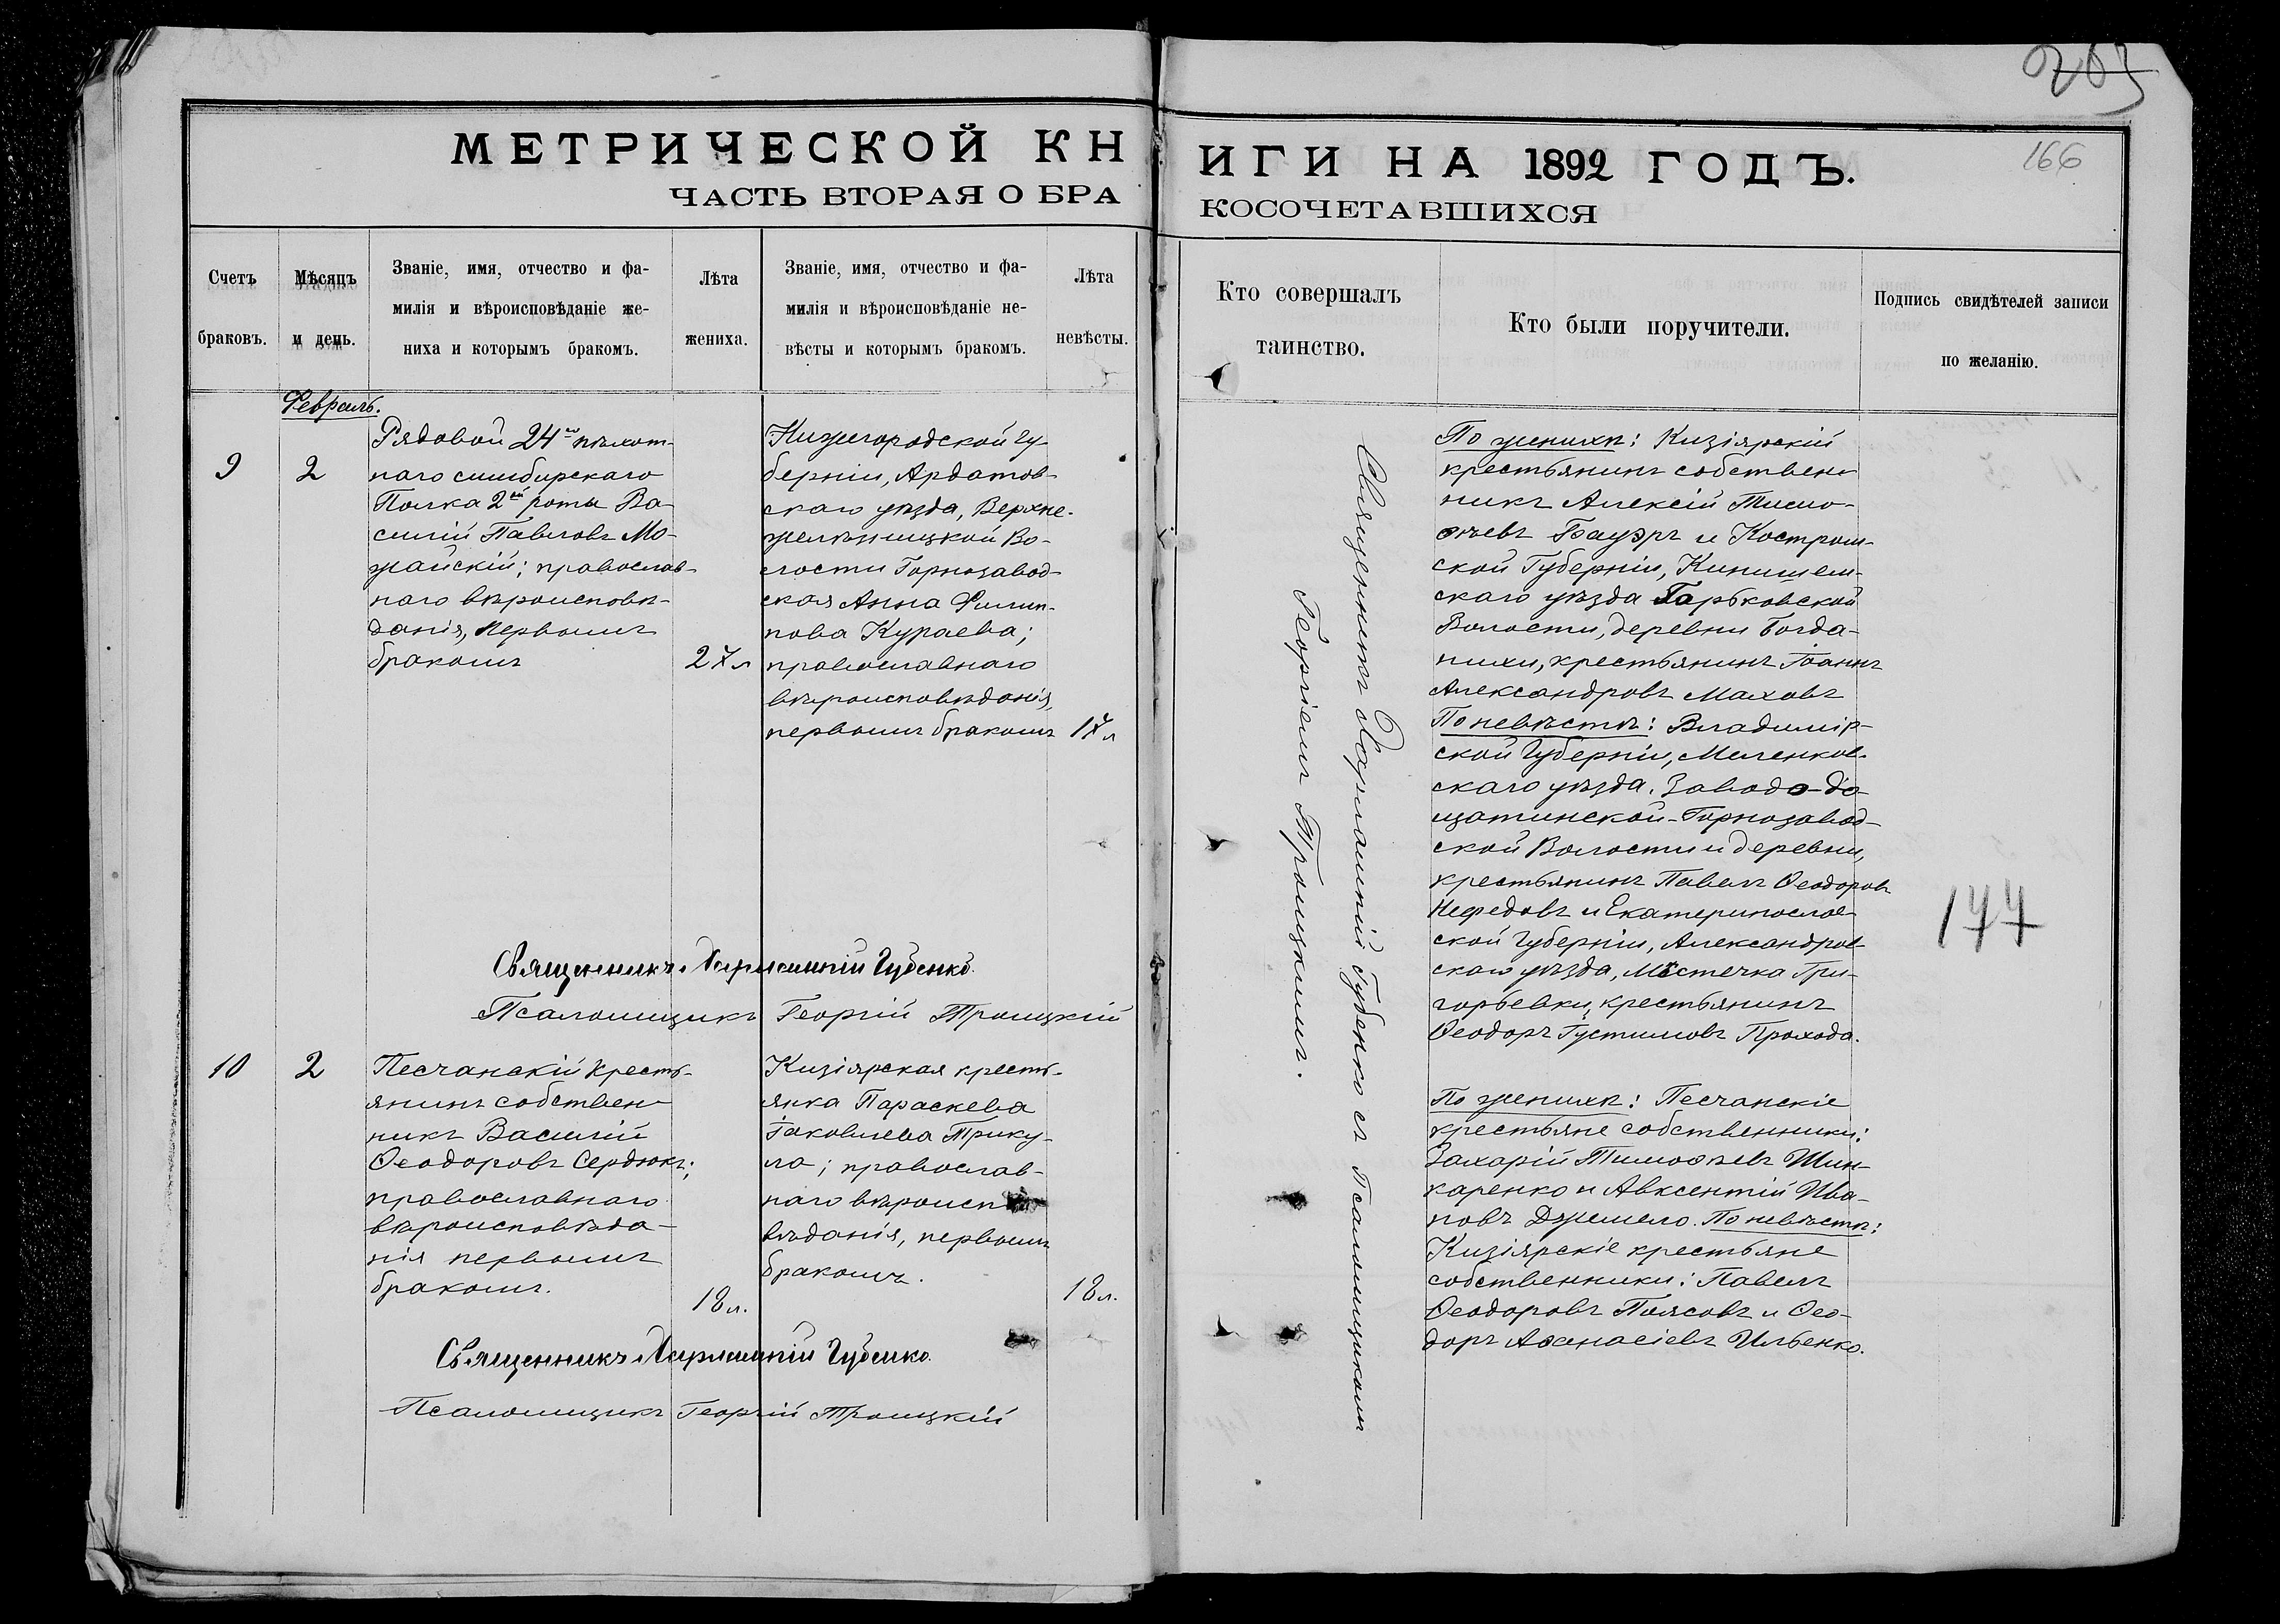 203
МЕТРИЧЕСКОЙ КН
ИГИ НА 1892 ГОДЪ.
166
ЧАСТЬ ВТОРАЯ О БРА
КОСОЧЕТАВШИХСЯ
Счетъ
браковъ.
Мѣсяцъ
и день.
Званіе, имя, отчество и фа-
милія и вѣроисповѣданіе же-
ниха и которымъ бракомъ.
Лѣта
жениха.
Званіе, имя, отчество и фа-
милія и вѣроисповѣданіе не-
вѣсты и которымъ бракомъ.
Лѣта
невѣсты.
Кто совершалъ
таинство.
Кто были поручители.
Подпись свидѣтелей записи
по желанію.
Февраль.
9
2
Рядовой 24го пѣхот-
наго симбирскаго
Полка 2ой роты Ва-
силій Павловъ Мо-
жайскій; православ-
наго вѣроисповѣ-
данія, первымъ
бракомъ
27 л
Нижегородской гу-
берніи, Ардатов-
скаго уѣзда, Верхне-
желѣзницкой Во-
лости Горнозавод-
ская Анна Филип-
пова Кураева;
православнаго
вѣроисповѣданія,
первымъ бракомъ
17 л
Священникъ Харлампій Губенко съ Псаломщикомъ
Георгіемъ Троицкимъ.
По женихѣ: Кизіярскій
крестьянинъ собствен-
никъ Алексій Тимо-
ѳеевъ Бауэръ и Костром-
ской Губерніи, Кинешем-
скаго уѣзда Горьковской
Волости, деревни Богда-
нихи, крестьянинъ Іоаннъ
Александровъ Маховъ
По невѣстѣ: Владимір-
ской Губерніи, Меленков-
скаго уѣзда. Заводо-До-
щатинской-Горнозавод-
ской Волости и деревни,
крестьянинъ Павелъ Ѳеодоровъ
Нефедовъ и Екатеринослав-
ской Губерніи, Александров-
скаго уѣзда, Мѣстечка Гри-
горьевки, крестьянинъ
Ѳеодоръ Густимовъ Прохода.
177
Священникъ Харлампій Губенко.
Псаломщикъ Георгій Троицкій
10
2
Песчанскій кресть-
янинъ собствен-
никъ Василій
Ѳеодоровъ Сердюкъ;
православнаго
вѣроисповѣда-
нія первымъ
бракомъ.
18 л.
Кизіярская кресть-
янка Параскева
Іаковлева Трику-
ла; православ-
наго вѣроиспо-
вѣданія, первымъ
бракомъ.
18 л.
По женихѣ: Песчанскіе
крестьяне собственники:
Захарій Тимоѳеевъ Шин-
каренко и Авксентій Ива-
новъ Джемело. По невѣстѣ:
Кизіярскіе крестьяне
собственники: Павелъ
Ѳеодоровъ Поясовъ и Ѳео-
доръ Аѳанасіевъ Ильенко.
Священникъ Харлампій Губенко.
Псаломщикъ Георгій Троицкій